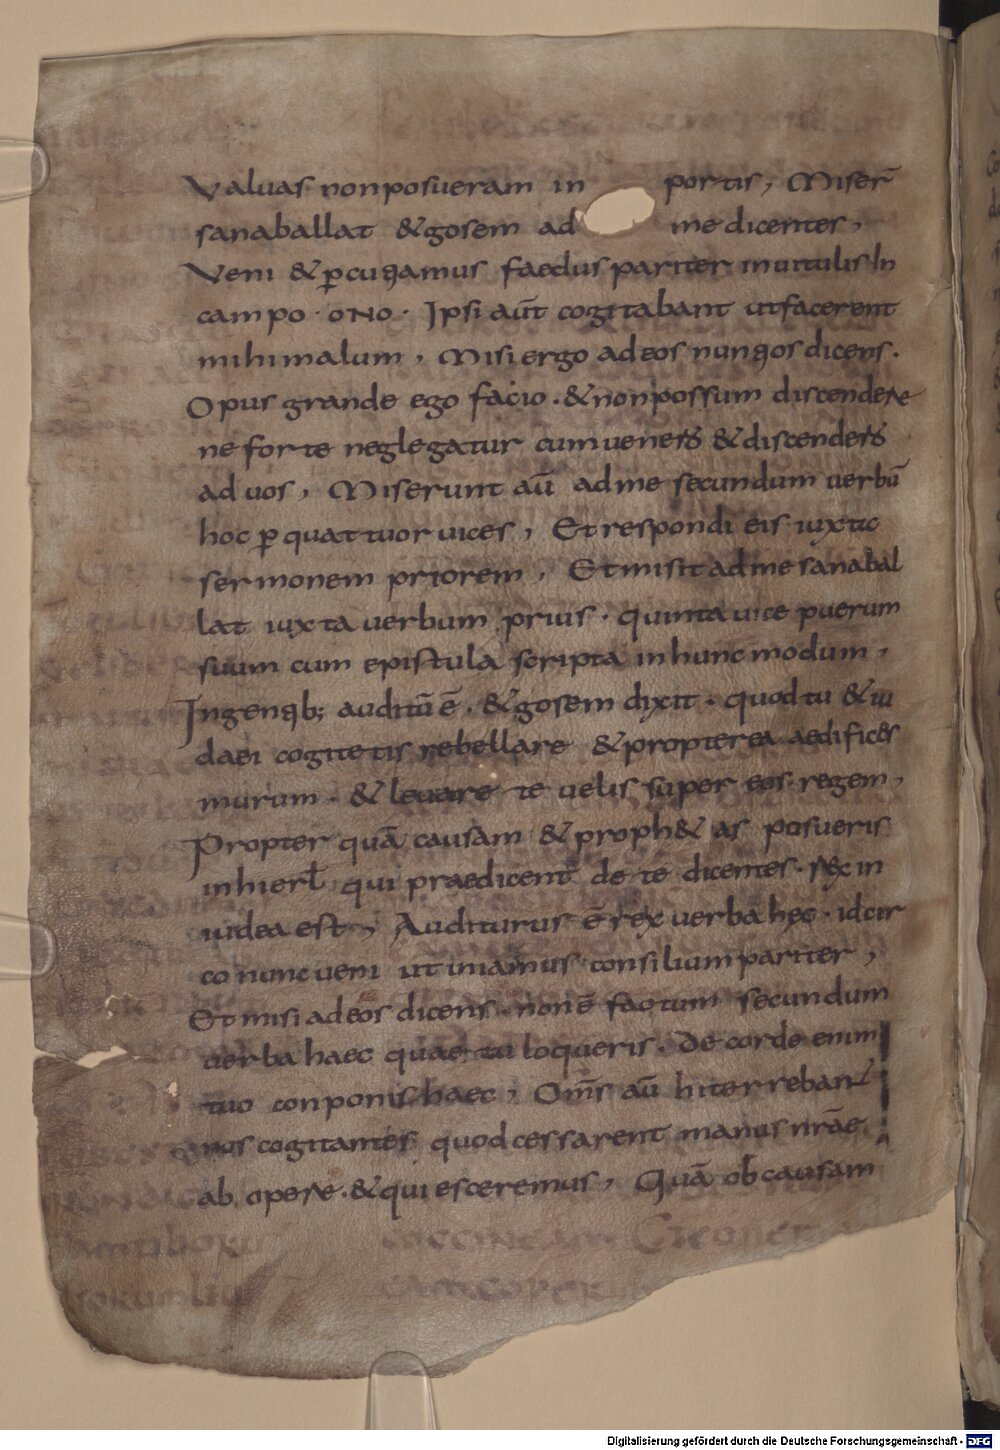 Valuas non posueram in portis, Miser̄
sanaballat &gosem ad me dicentes,
Veni & ꝑcuꞇiamus faedus pariter inuitulis In
campo · oNo · Ipsi aūt cogitabant utfacerent
mihi malum, Misi ergo ad eos nuntios dicens.
Opus grande ego facio · & non possum discendere
ne forte neglegatur cum venero & discendero
ad uos, Miserunt aū ad me secundum uerbū
hoc ꝑ quattuor uices, Et respondi eis iuxta
sermonem priorem, Et misit ad me sanabal
lat iuxta uerbum prius · quinta uice puerum
suum cum epistula scripta in hunc modum,
In gentib; auditū ē · & gosem dixit · quod tu & iu
daei cogitetis rebellare & propterea aedifices
murum · & leuare te uelis super eos regem,
Propter quā causam & proph&as posueris
in hierl̄ qui praedicent de te dicentes · rex in
iudea est, Auditurus ē rex uerba hęc · idcir
co nunc ueni ut iniamus consilium pariter,
Et misi ad eos dicens · non ē factum secundum
uerba haec quae tu loqueris · De corde enim
tuo conponis haec, Om̄s aū hi terrebant
nos cogitantes quod cessarent manus nr̄ae
ab opere · & quiesceremus, Quā ob causam
Digitalisierung gefördert durch die Deutsche Forschungsgemeinschaft - DFG